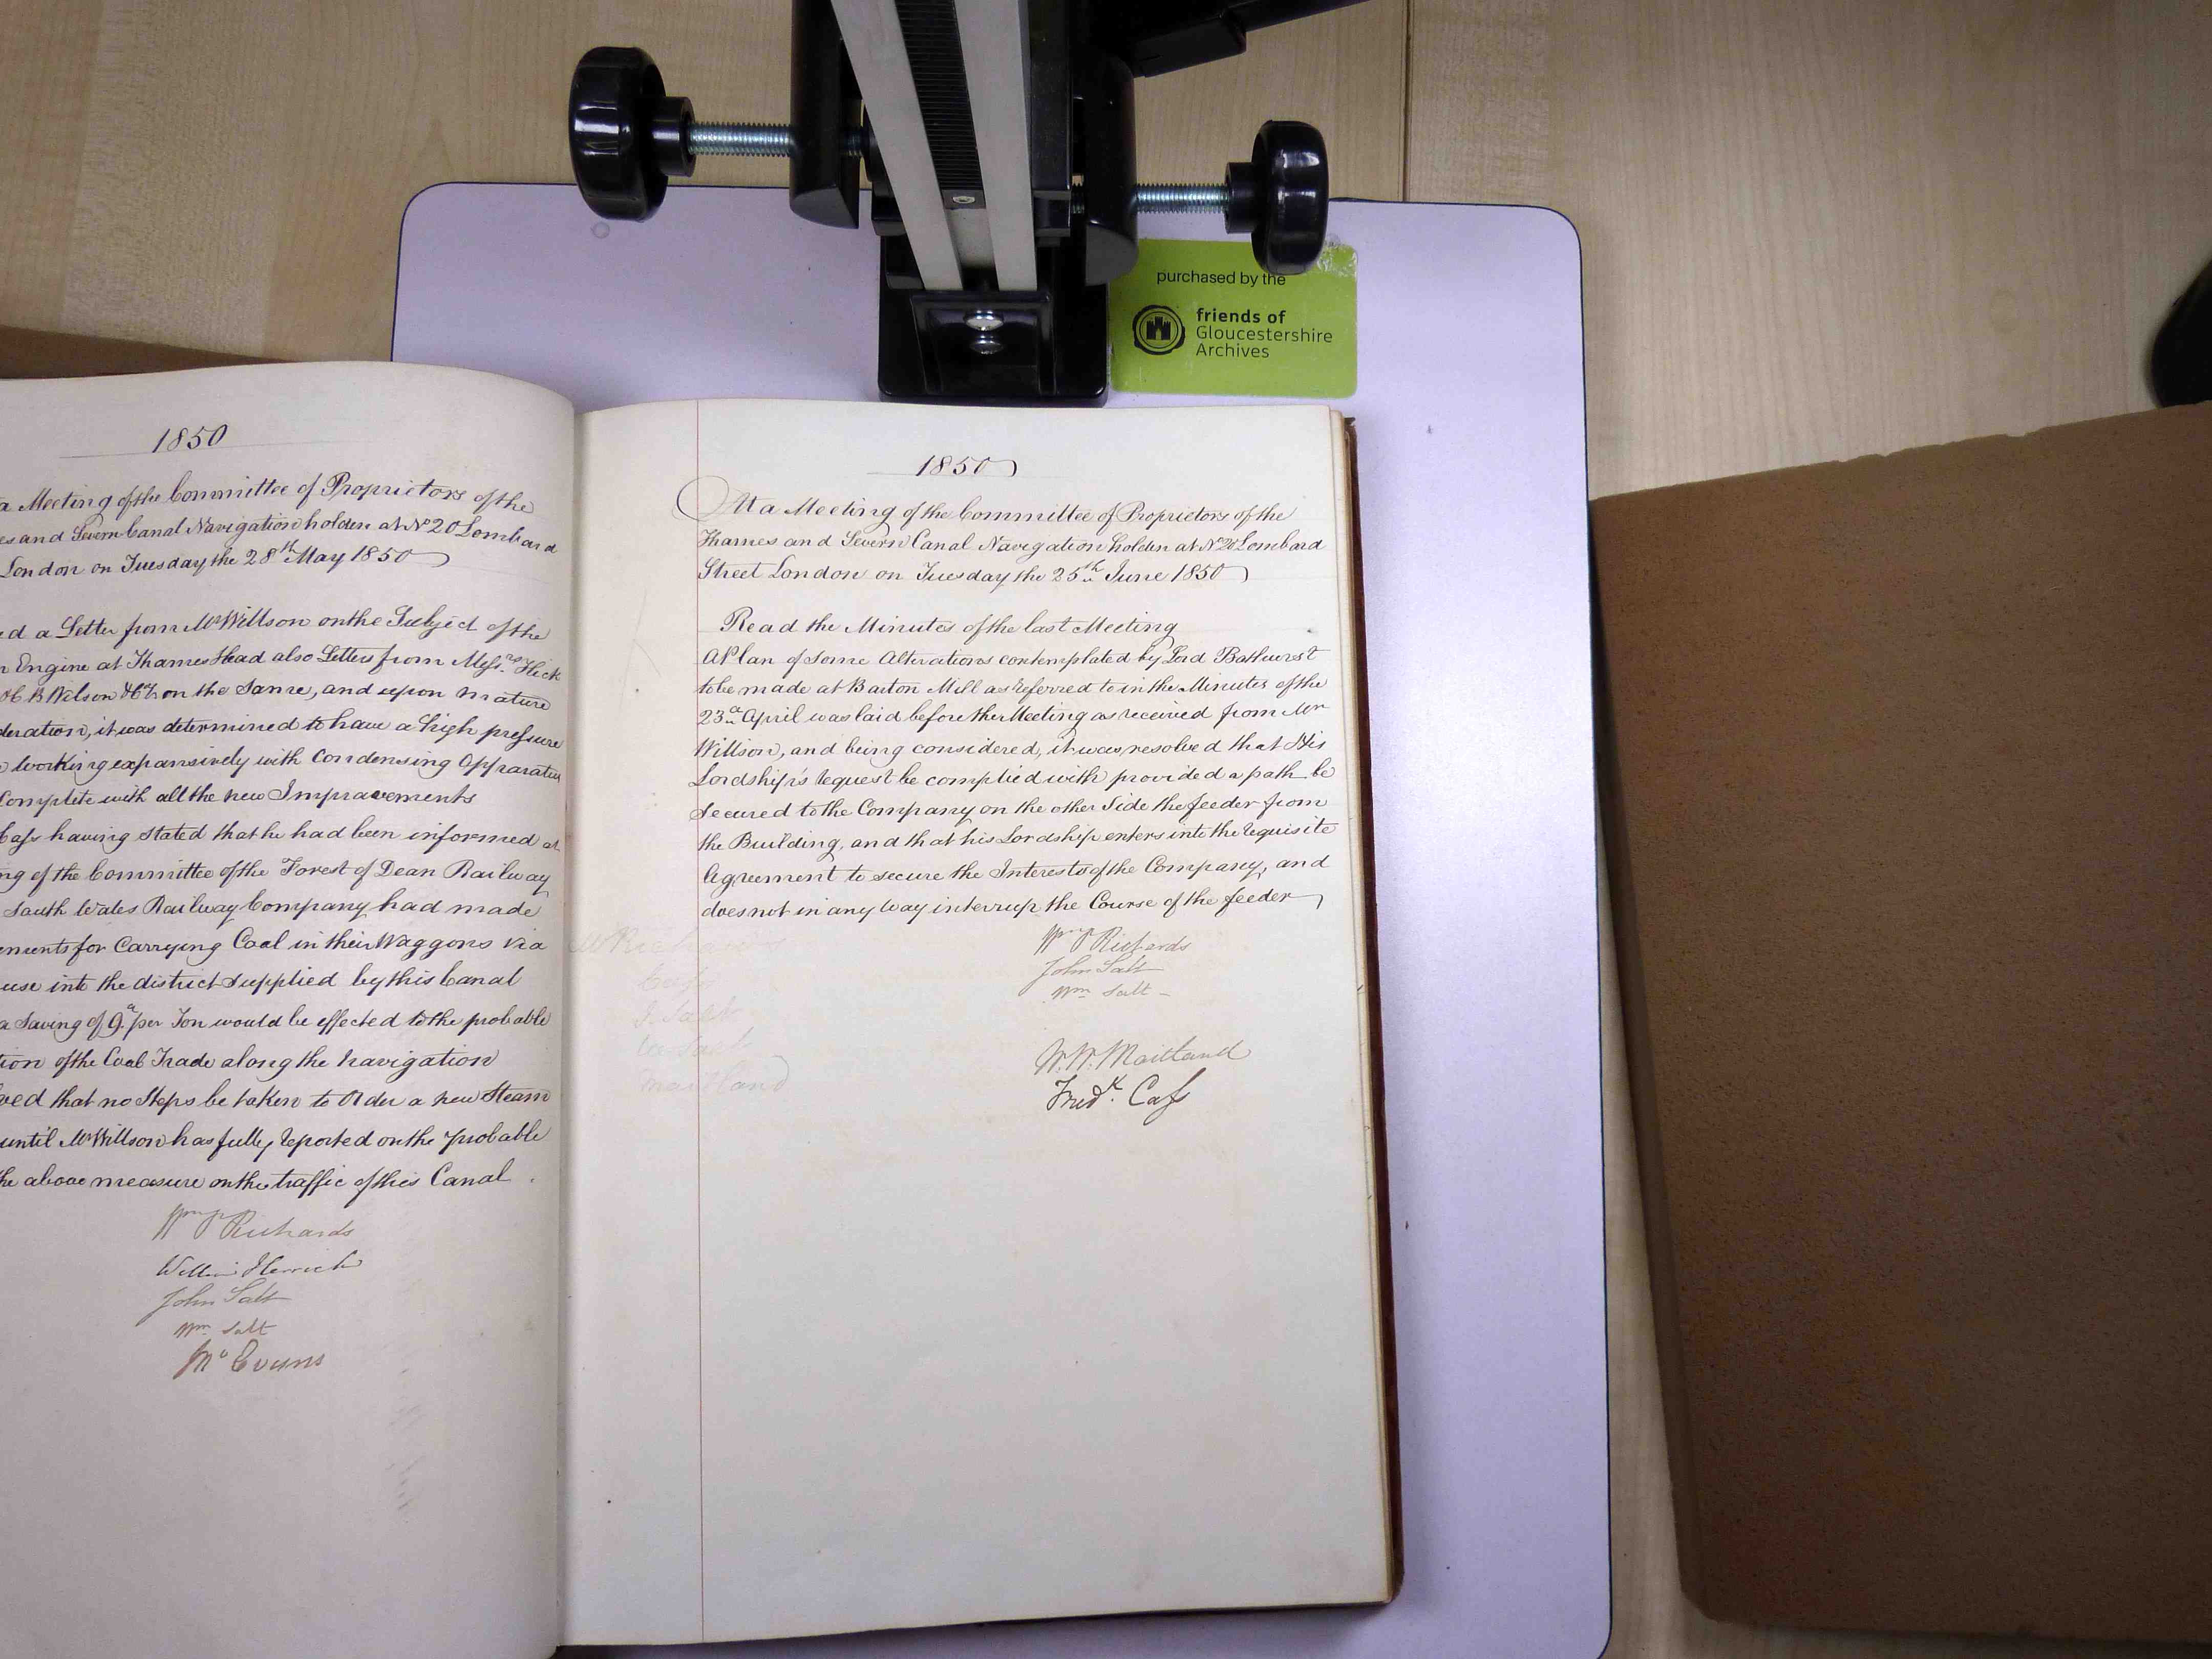 purchased by the
friends of
Gloucestershire
Archives
1850
a Meeting of the Committee of Proprietors of the
es and Severn Canal Navigation holden at No 20 Lombard
London on Tuesday the 28th May 1850
ed a Letter from Mr Willson on the Subject of the
n Engine at Thames Head also Letters from Messrs Hick
& B Wilson & Co on the Same, and upon mature
deration, it was determined to have a high pressure
working expansively with Condensing Apparatus
Complete with all the new Improvements
Cass having stated that he had been informed at
ng of the Committee of the Forest of Dean Railway
South Wales Railway Company had made
ements for Carrying Coal in their Waggons via
use into the district supplied by this Canal
a Saving of 9d per Ton would be effected to the probable
tion of the Coal Trade along the Navigation
ved that no Steps be taken to Order a new Steam
until Mr Willson has fully reported on the probable
he above measure on the traffic of this Canal.
Richards
William Herrick
John Salt
Wm Salt
Evans
1850
At a Meeting of the Committee of Proprietors of the
Thames and Severn Canal Navigation holden at No 20 Lombard
Street London on Tuesday the 25th June 1850
Read the Minutes of the last Meeting
A Plan of some Alterations contemplated by Lord Bathurst
to be made at Barton Mill as referred to in the Minutes of the
23d April was laid before the Meeting as received from Mr
Willson, and being considered, it was resolved that His
Lordship's request be complied with provided a path be
secured to the Company on the other Side the feeder from
the Building, and that his Lordship enters into the requisite
Agreement to secure the Interests of the Company, and
does not in any way interrup the Course of the feeder
Richards
John Salt
Wm Salt
W. W. Maitland
Fredk. Cass
Maitland